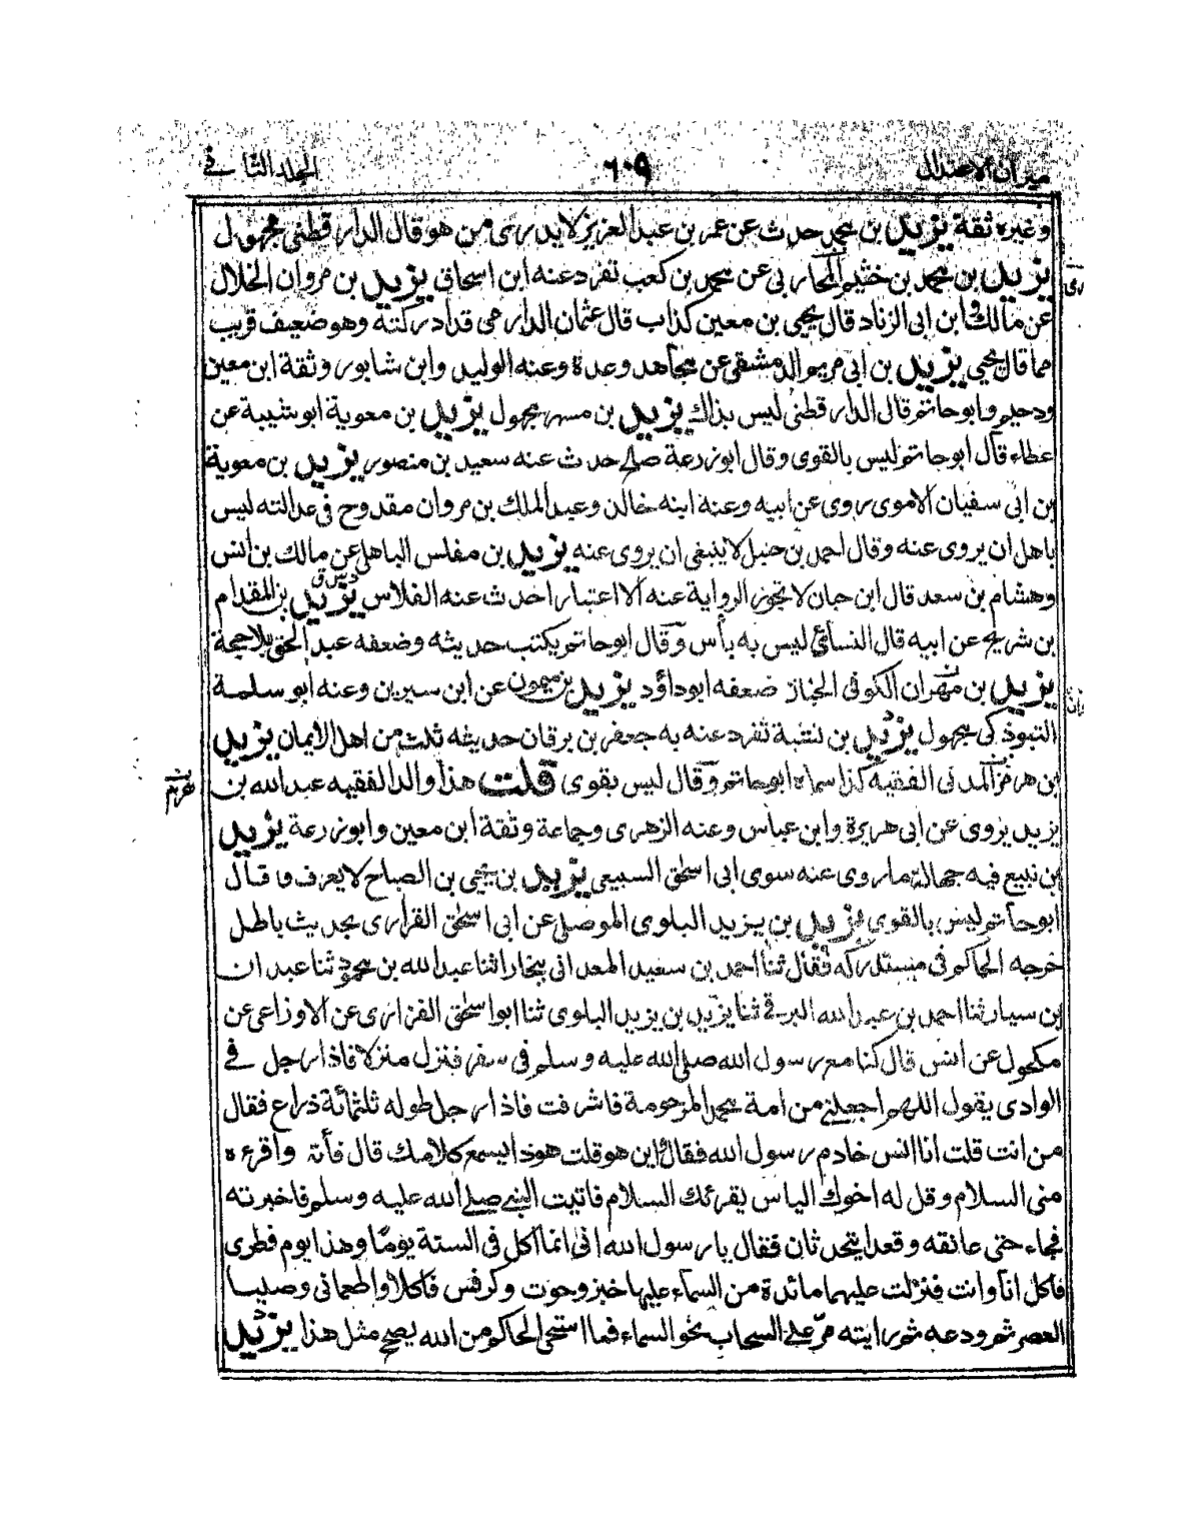 ميزان الاعتدال ٦٠٩ المجلد الثاني
وغيره ثقة يزيد بن محمد حدث عن عمر بن عبد العزيز لا يدرى من هو قال الدارقطني مجهول
يزيد بن محمد بن خثيم المحاربي عن محمد بن كعب تفرد عنه ابن اسحاق يزيد بن مروان الخلال
عن مالك وابن ابي الزناد قال يحيى بن معين كذاب قال عثمان الدارمي قد ادركته وهو ضعيف قريب
مما قال يحيى يزيد بن ابي مريم الدمشقي عن مجاهد وعدة وعنه الوليد وابن شابور وثقة ابن معين
ودحيم وابو حاتم قال الدارقطني ليس بذاك يزيد بن مسهر مجهول يزيد بن معوية ابو شيبة عن
عطاء قال ابو حاتم ليس بالقوى وقال ابو زرعة صالح حدث عنه سعيد بن منصور يزيد بن معوية
بن ابي سفيان الاموى روى عن ابيه وعنه ابنه خالد وعبد الملك بن مروان مقدوح في عدالته ليس
باهل ان يروى عنه وقال احمد بن حنبل لا ينبغي ان يروى عنه يزيد بن مفلس الباهلي عن مالك بن انس
وهشام بن سعد قال ابن حبان لا تجوز الرواية عنه الا اعتبارا حدث عنه الفلاس يزيد بن المقدام
بن شريح عن ابيه قال النسائي ليس به بأس وقال ابو حاتم يكتب حديثه وضعفه عبد الحق بلا حجة
يزيد بن مهران الكوفي الخباز ضعفه ابو داؤد يزيد بن ميمون عن ابن سيرين وعنه ابو سلمة
التبوذكي مجهول يزيد بن نشبة تفرد عنه به جعفر بن برقان حديثه ثلث من اهل الايمان يزيد
بن هرمز المدني الفقيه كذا سماه ابو حاتم وقال ليس بقوى قلت هذا والد الفقيه عبد الله بن
يزيد يروى عن ابي هريرة وابن عباس وعنه الزهرى وجماعة وثقة ابن معين وابو زرعة يزيد
بن نبيع فيه جهالة ما روى عنه سوى ابي اسحق السبيعي يزيد بن يحيى بن الصباح لا يعرف وقال
ابو حاتم ليس بالقوى يزيد بن يزيد البلوى الموصلي عن ابي اسحق الفزارى بحديث باطل
خرجه الحاكم في مستدركه فقال ثنا احمد بن سعيد المعداني ببخارا ثنا عبد الله بن محمود ثنا عبدان
بن سيار ثنا احمد بن عبد الله البرقي ثنا يزيد بن يزيد البلوى ثنا ابو اسحق الفزارى عن الاوزاعي عن
مكحول عن انس قال كنا مع رسول الله صلى الله عليه وسلم في سفر فنزل منزلا فاذا رجل في
الوادى يقول اللهم اجعلني من امة محمد المرحومة فاشرفت فاذا رجل طوله ثلثمائة ذراع فقال
من انت قلت انا انس خادم رسول الله فقال اين هو قلت هوذا يسمع كلامك قال فأته واقرءه
مني السلام وقل له اخوك الياس يقرئك السلام فاتيت النبي صلى الله عليه وسلم فاخبرته
فجاء حتى عانقه وقعدا يتحدثان فقال يا رسول الله اني انما آكل في السنة يوما وهذا يوم فطرى
فاكل انا وانت فنزلت عليهما مائدة من السماء عليها خبز وحوت وكرفس فاكلا واطعماني وصلينا
العصر ثم ودعه ثم رايته مر على السحاب نحو السماء فما استحى الحاكم من الله يصحح مثل هذا يزيد